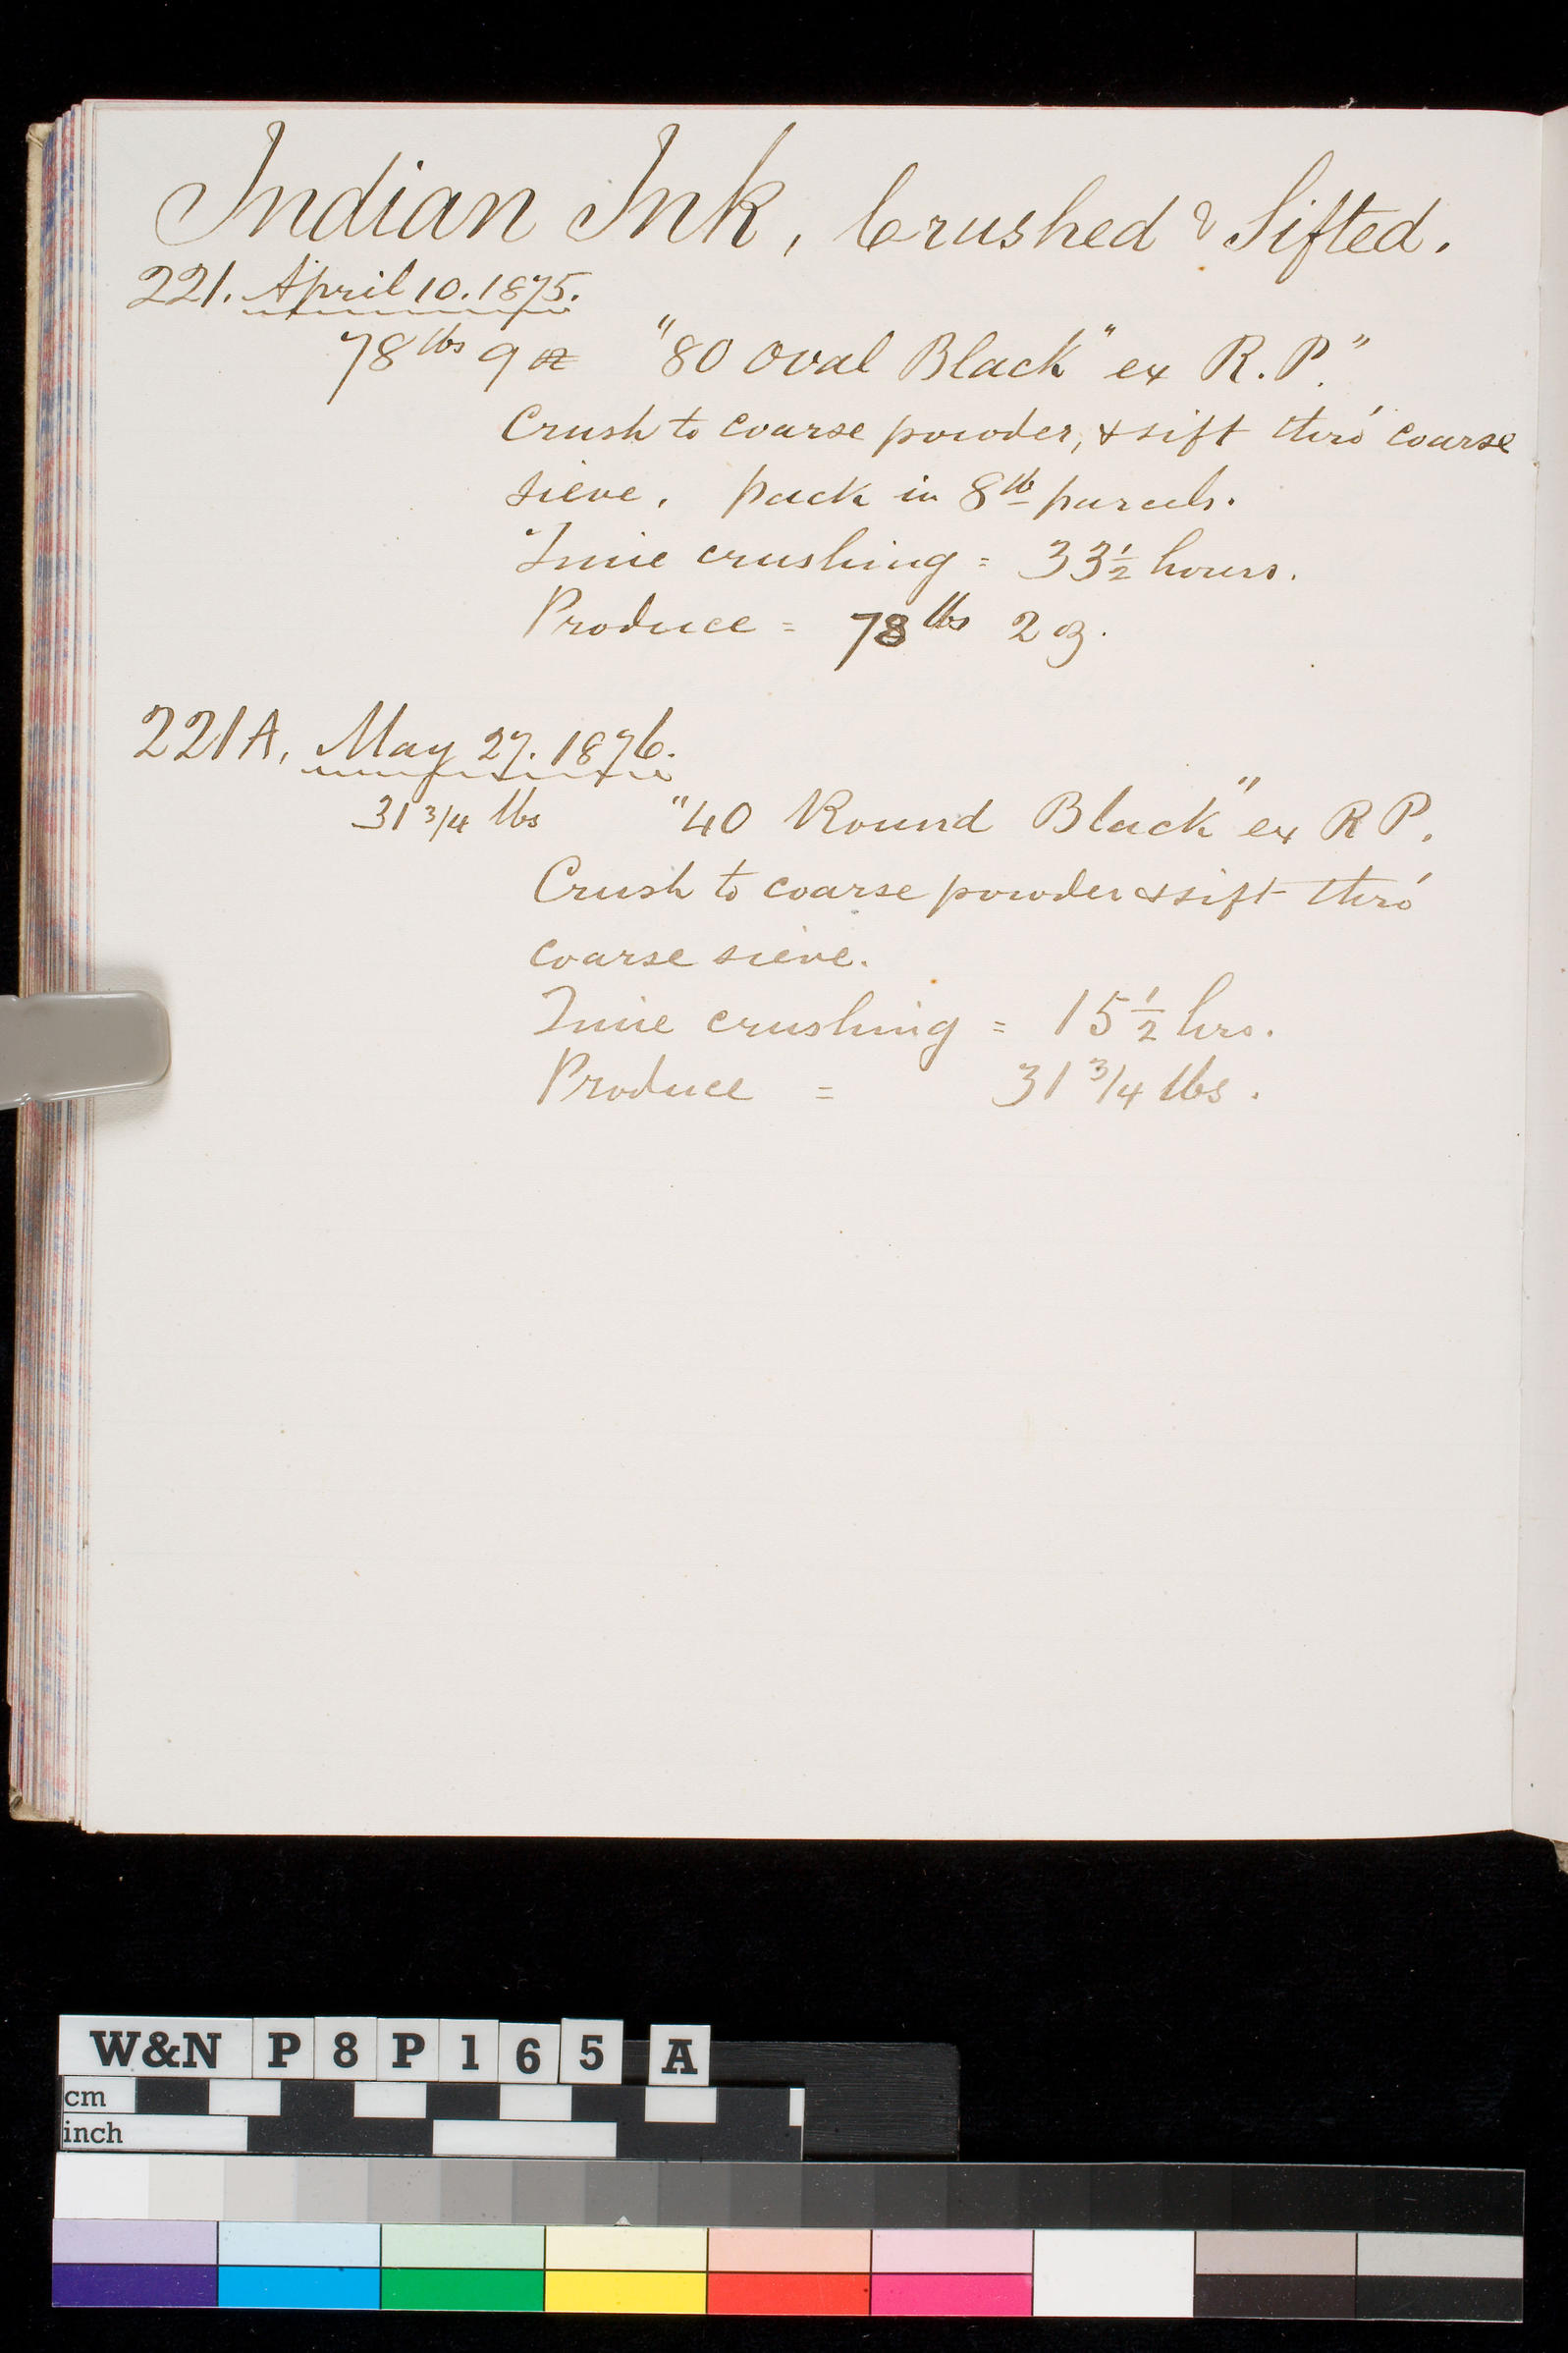 Indian Ink, Crushed & Sifted.
221. April 10. 1875.
78 lbs 9 oz "80 Oval Black" ex R.P."
Crush to coarse powder, & sift thro' coarse
sieve, pack in 8 lb parcels.
Time crushing = 33 1/2 hours.
Produce = 78 lbs 2 oz.
221A, May 27. 1876.
31 3/4 lbs "40 Round Black" ex R P.
Crush to coarse powder & sift thro'
coarse sieve.
Time crushing = 15 1/2 hrs.
Produce = 31 3/4 lbs.
W&N P8P165 A
cm
inch